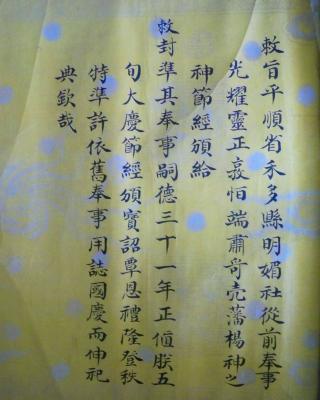 敕旨平順省禾多縣明媚社從前奉事
光耀靈正哀怕端肅奇壳藩楊神之
神節經頒給
敕封準其奉事嗣德三十一年正值朕五
旬大慶節經頒寶詔覃恩禮隆登秩
特準許依舊奉事用誌國慶而伸祀
典欽哉